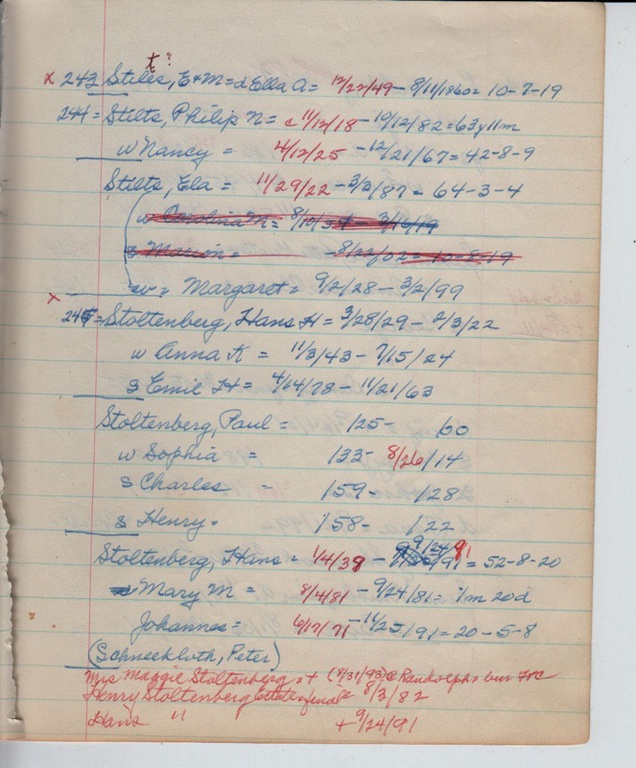 t?
x 243 Stiles, E+M = d Ella A = 12/22/49 - 8/11/1860 = 10-7-19
244 = Stilts, Philip N = c 11/12/18 - 10/12/82 = 63y11m
w Nancy = 4/12/25 - 12/21/67 = 42-8-9
Stilts, Ela = 11/29/22 - 3/3/87 = 64-3-4
w Carolina M = 8/10/ - 3/16/19
s Marion = - 8/22/62 = 10-8-19
w = Margaret = 9/2/28 - 3/2/99
x
245 = Stoltenberg, Hans H = 3/28/29 - 2/3/22
w Anna K = 11/3/43 - 7/15/24
s Emil H = 4/14/78 - 11/21/63
Stoltenberg, Paul = 125- 60
w Sophia = 133- 8/26/14
s Charles = 159- 128
s Henry = 158- 122
Stoltenberg, Hans = 1/4/39 - 9/24/91 = 52-8-20
Mary M = 8/4/81 - 9/24/81 = 1m 20d
Johannes = 6/17/71 - 11/25/91 = 20-5-8
(Schneekloth, Peter)
Mrs Maggie Stoltenberg = + (7/31/93) @ Randolph = bur IVC
Henry Stoltenberg Estate = final = 8/3/82
Hans " + 9/24/91